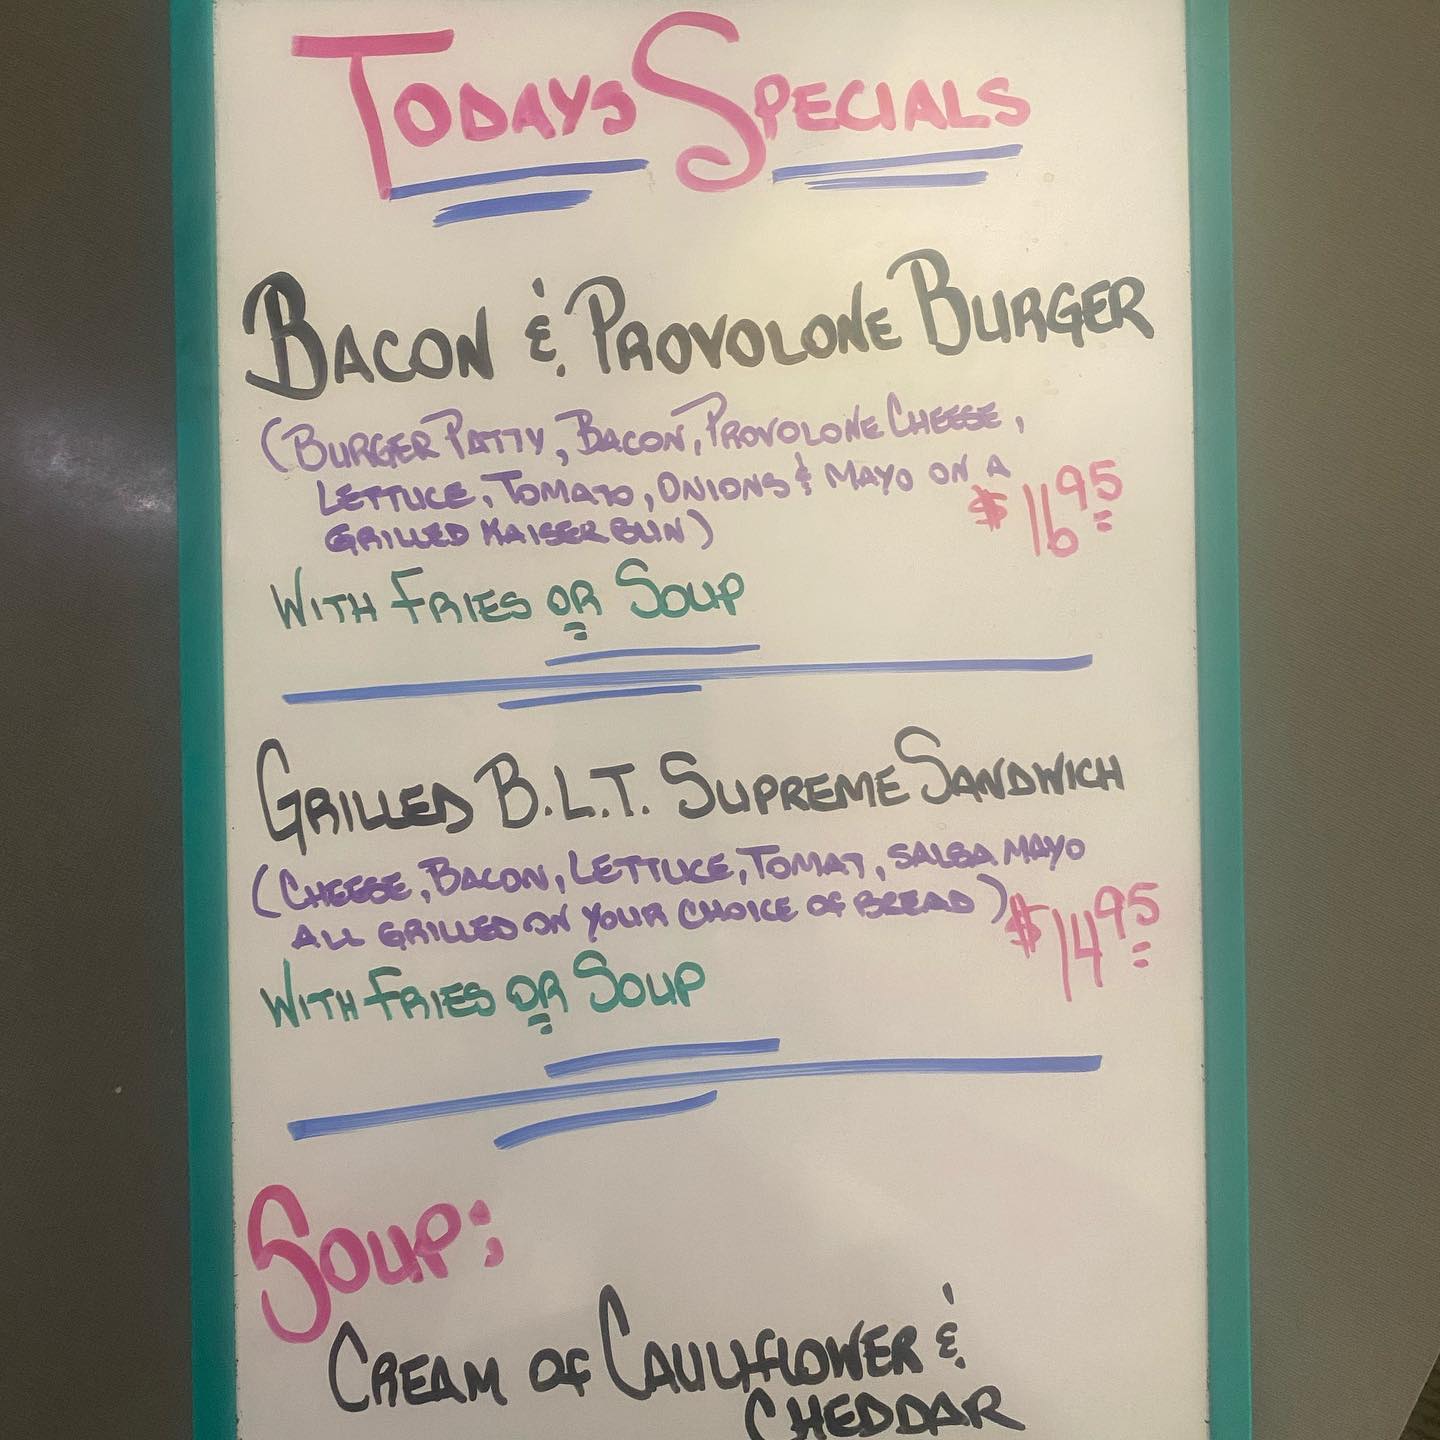 TODAYS SPECIALS
BACON & PROVOLONE BURGER
(BURGER PATTY, BACON, PROVOLONE CHEESE,
LETTUCE, TOMATO, ONIONS & MAYO ON A
GRILLED KAISER BUN)
$16.95
WITH FRIES OR SOUP
GRILLED B.L.T. SUPREME SANDWICH
(CHEESE, BACON, LETTUCE, TOMAT, SALSA MAYO
ALL GRILLED ON YOUR CHOICE OF BREAD)
$14.95
WITH FRIES OR SOUP
SOUP:
CREAM OF CAULIFLOWER &
CHEDDAR